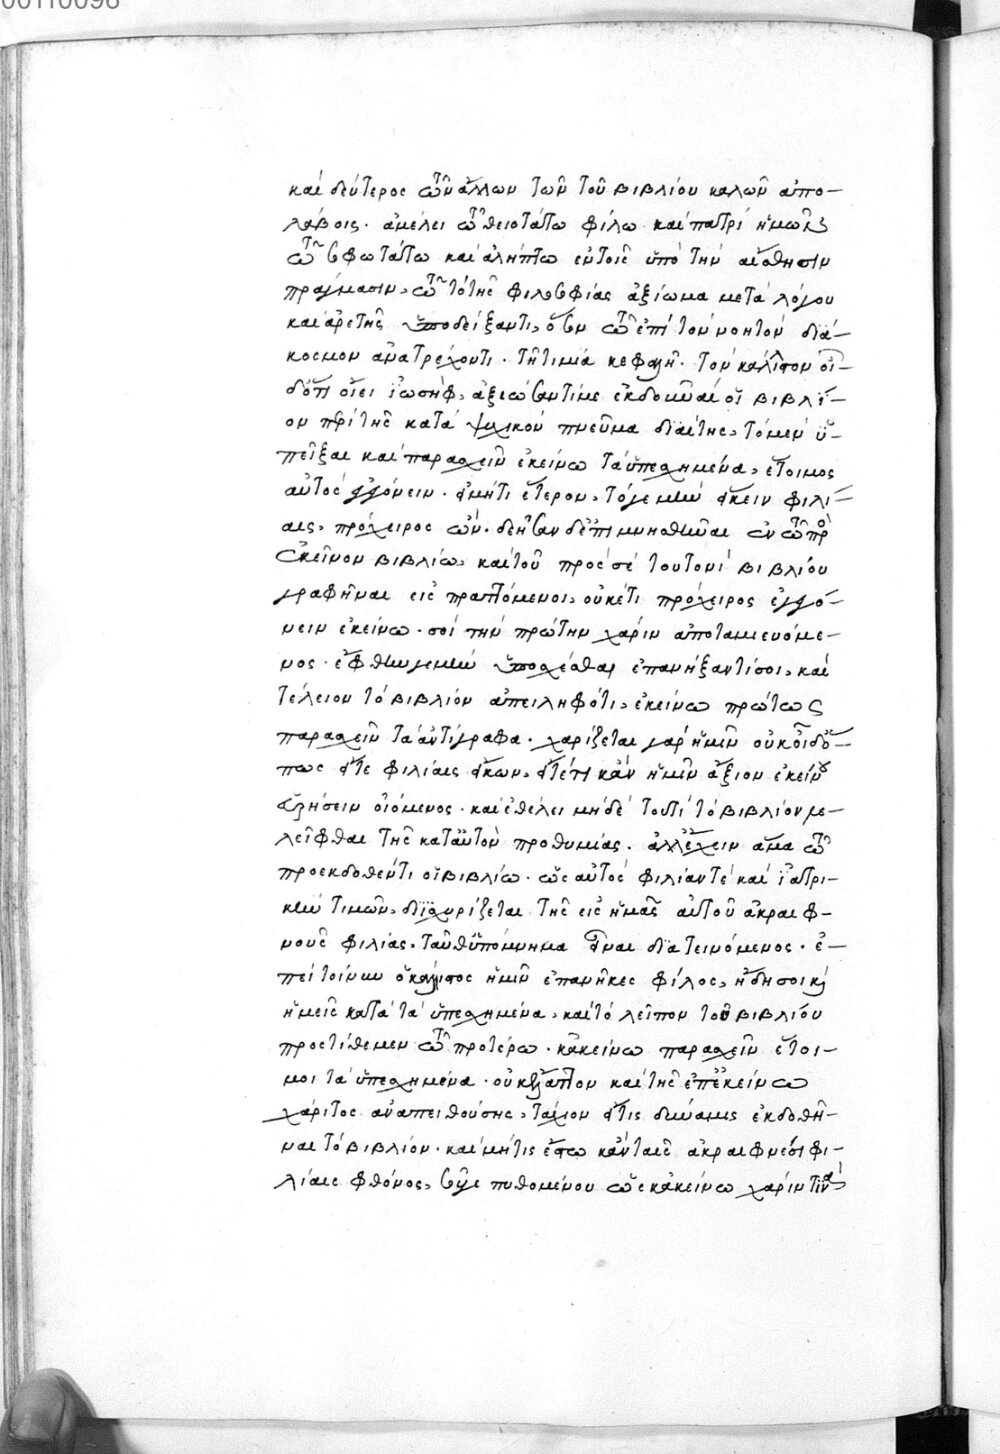 00110098
καὶ δεύτερος τῶν ἄλλων τῶν τοῦ βιβλίου καλῶν ἀπο-
λάβοις. ἀμέλει τῶ θειοτάτω φίλω καὶ πατρὶ ἡμῶν
τῶ σοφωτάτω καὶ ἀλήπτω ἐν τοῖς ὑπὸ τὴν αἴσθησιν
πράγμασιν, τῶ τὸ τῆς φιλοσοφίας ἀξίωμα μετὰ λόγου
καὶ ἀρετῆς ὑποδείξαντι, ὅθεν τῶ ἐπὶ τὸν νοητὸν διά-
κοσμον ἀνατρέχοντι. τῆ τιμία κεφαλῆ. τὸν κάλλιστον οἶ-
δ' ὅτι οἴει ἰωσὴφ, ἀξιώσαντί με ἐκδοῦναί οἱ βιβλί-
ον περὶ τῆς κατὰ ψυχικὸν πνεῦμα διαίτης, τὸ μὲν ὑ-
πεῖξαι καὶ παρασχεῖν ἐκείνω τὰ ὑπεσχημένα, ἕτοιμος
αὐτὸς ἐγεγόνειν. εἰ μήτι ἕτερον, τό γε μὴν εἴκειν φιλί-
αις, πρόχειρος ὤν. δεῆσαν δὲ ἐπιμνησθῆναι ἐν τῶ πρὸς
ἐκεῖνον βιβλίω, καὶ τοῦ πρὸς σὲ τουτονὶ βιβλίου
γραφῆναι εἰς πραττόμενοι, οὐκέτι πρόχειρος ἐγεγό-
νειν ἐκείνω. σοὶ τὴν πρώτην χάριν ἀποταμιευόμε-
νος. ἔφθην γε μὴν ὑποσχέσθαι ἐπανήξαντί σοι, καὶ
τέλειον τὸ βιβλίον ἀπειληφότι, ἐκείνω πρώτως
παρασχεῖν τὰ ἀντίγραφα. χαρίζεται γὰρ ἡμῖν οὐκ οἶδ' ὅ-
πως εἴτε φιλίαις εἴκων, εἴτέ τι κἂν ἡμῖν ἄξιον ἐκείνου
εὑρήσειν οἰόμενος. καὶ ἐθέλει μηδὲ τουτὶ τὸ βιβλίον λε-
λεῖφθαι τῆς κατ' αὐτὸν προθυμίας. ἀλλ' ἔχειν ἅμα τῶ
προεκδοθέντι οἱ βιβλίω. ὡς αὐτὸς φιλίαν τὲ καὶ ἰατρι-
κὴν τιμῶν, διισχυρίζεται τῆς εἰς ἡμᾶς αὐτοῦ ἀκραιφ-
νοῦς φιλίας. ταῦθ' ὑπόμνημα εἶναι διατεινόμενος. ἐ-
πεὶ τοίνυν ὁ κάλλιστος ἡμῖν ἐπανῆκες φίλος, ἤδη σοι καὶ
ἡμεῖς κατὰ τὰ ὑπεσχημένα, καὶ τὸ λεῖπον τοῦ βιβλίου
προστίθεμεν τῶ προτέρω. κἀκείνω παρασχεῖν ἕτοι-
μοι τὰ ὑπεσχημένα. οὐκ ἔλαττον καὶ τῆς ἐπ' ἐκείνω
χάριτος ἀναπειθούσης, τάχιον εἴ τις δύναμις ἐκδοθῆ-
ναι τὸ βιβλίον. καὶ μή τις ἔστω κἂν ταῖς ἀκραιφνέσι φι-
λίαις φθόνος, σοῦ γε πυθομένου ὡς κἀκείνω χάριν τινὰ